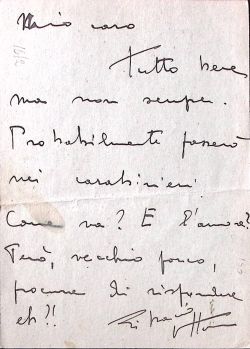 Mio caro
Tutto bene
ma non sempre.
Probabilmente passerò
nei carabinieri.
Come va? E l'amore?
Però, vecchio porco,
procura di rispondere
eh?!